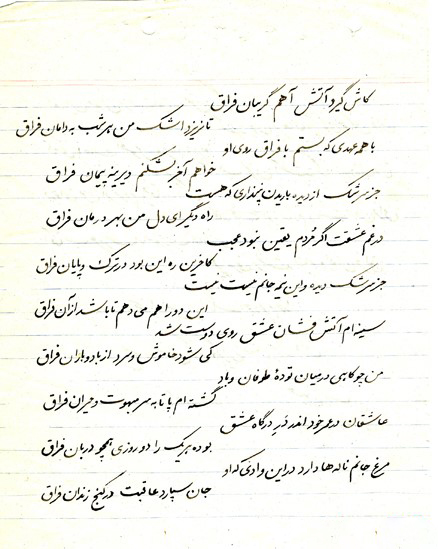 کاش گیرد آتش آهم گریبان فراق
تا نریزد اشک من هر شب به دامان فراق
با همه عهدی که بستم با فراق روی او
خواهم آخر بشکنم دیرینه پیمان فراق
جز سرشک از دیده باریدن نپنداری که هست
راه دیگر ای دل من بهر درمان فراق
در غم عشقت اگر مُردم یقین نبود عجب
کاخرین ره این بود در ترک و پایان فراق
جز سرشک دیده و این نیمه جانم نیست نیست
این دو را هم می دهم تا باشد از آن فراق
سینه ام آتش فشان عشق روی دوست شد
کی شود خاموش و سرد از باد و باران فراق
من چو کاهی در میان تودهٔ طوفان و باد
گشته ام پا تا به سر مبهوت و حیران فراق
عاشقان در عمر خود اندر درگاه عشق
بوده هر یک را دو روزی همچو دربان فراق
مرغ جانم ناله ها دارد در این وادی که او
جان سپارد عاقبت در کنج زندان فراق